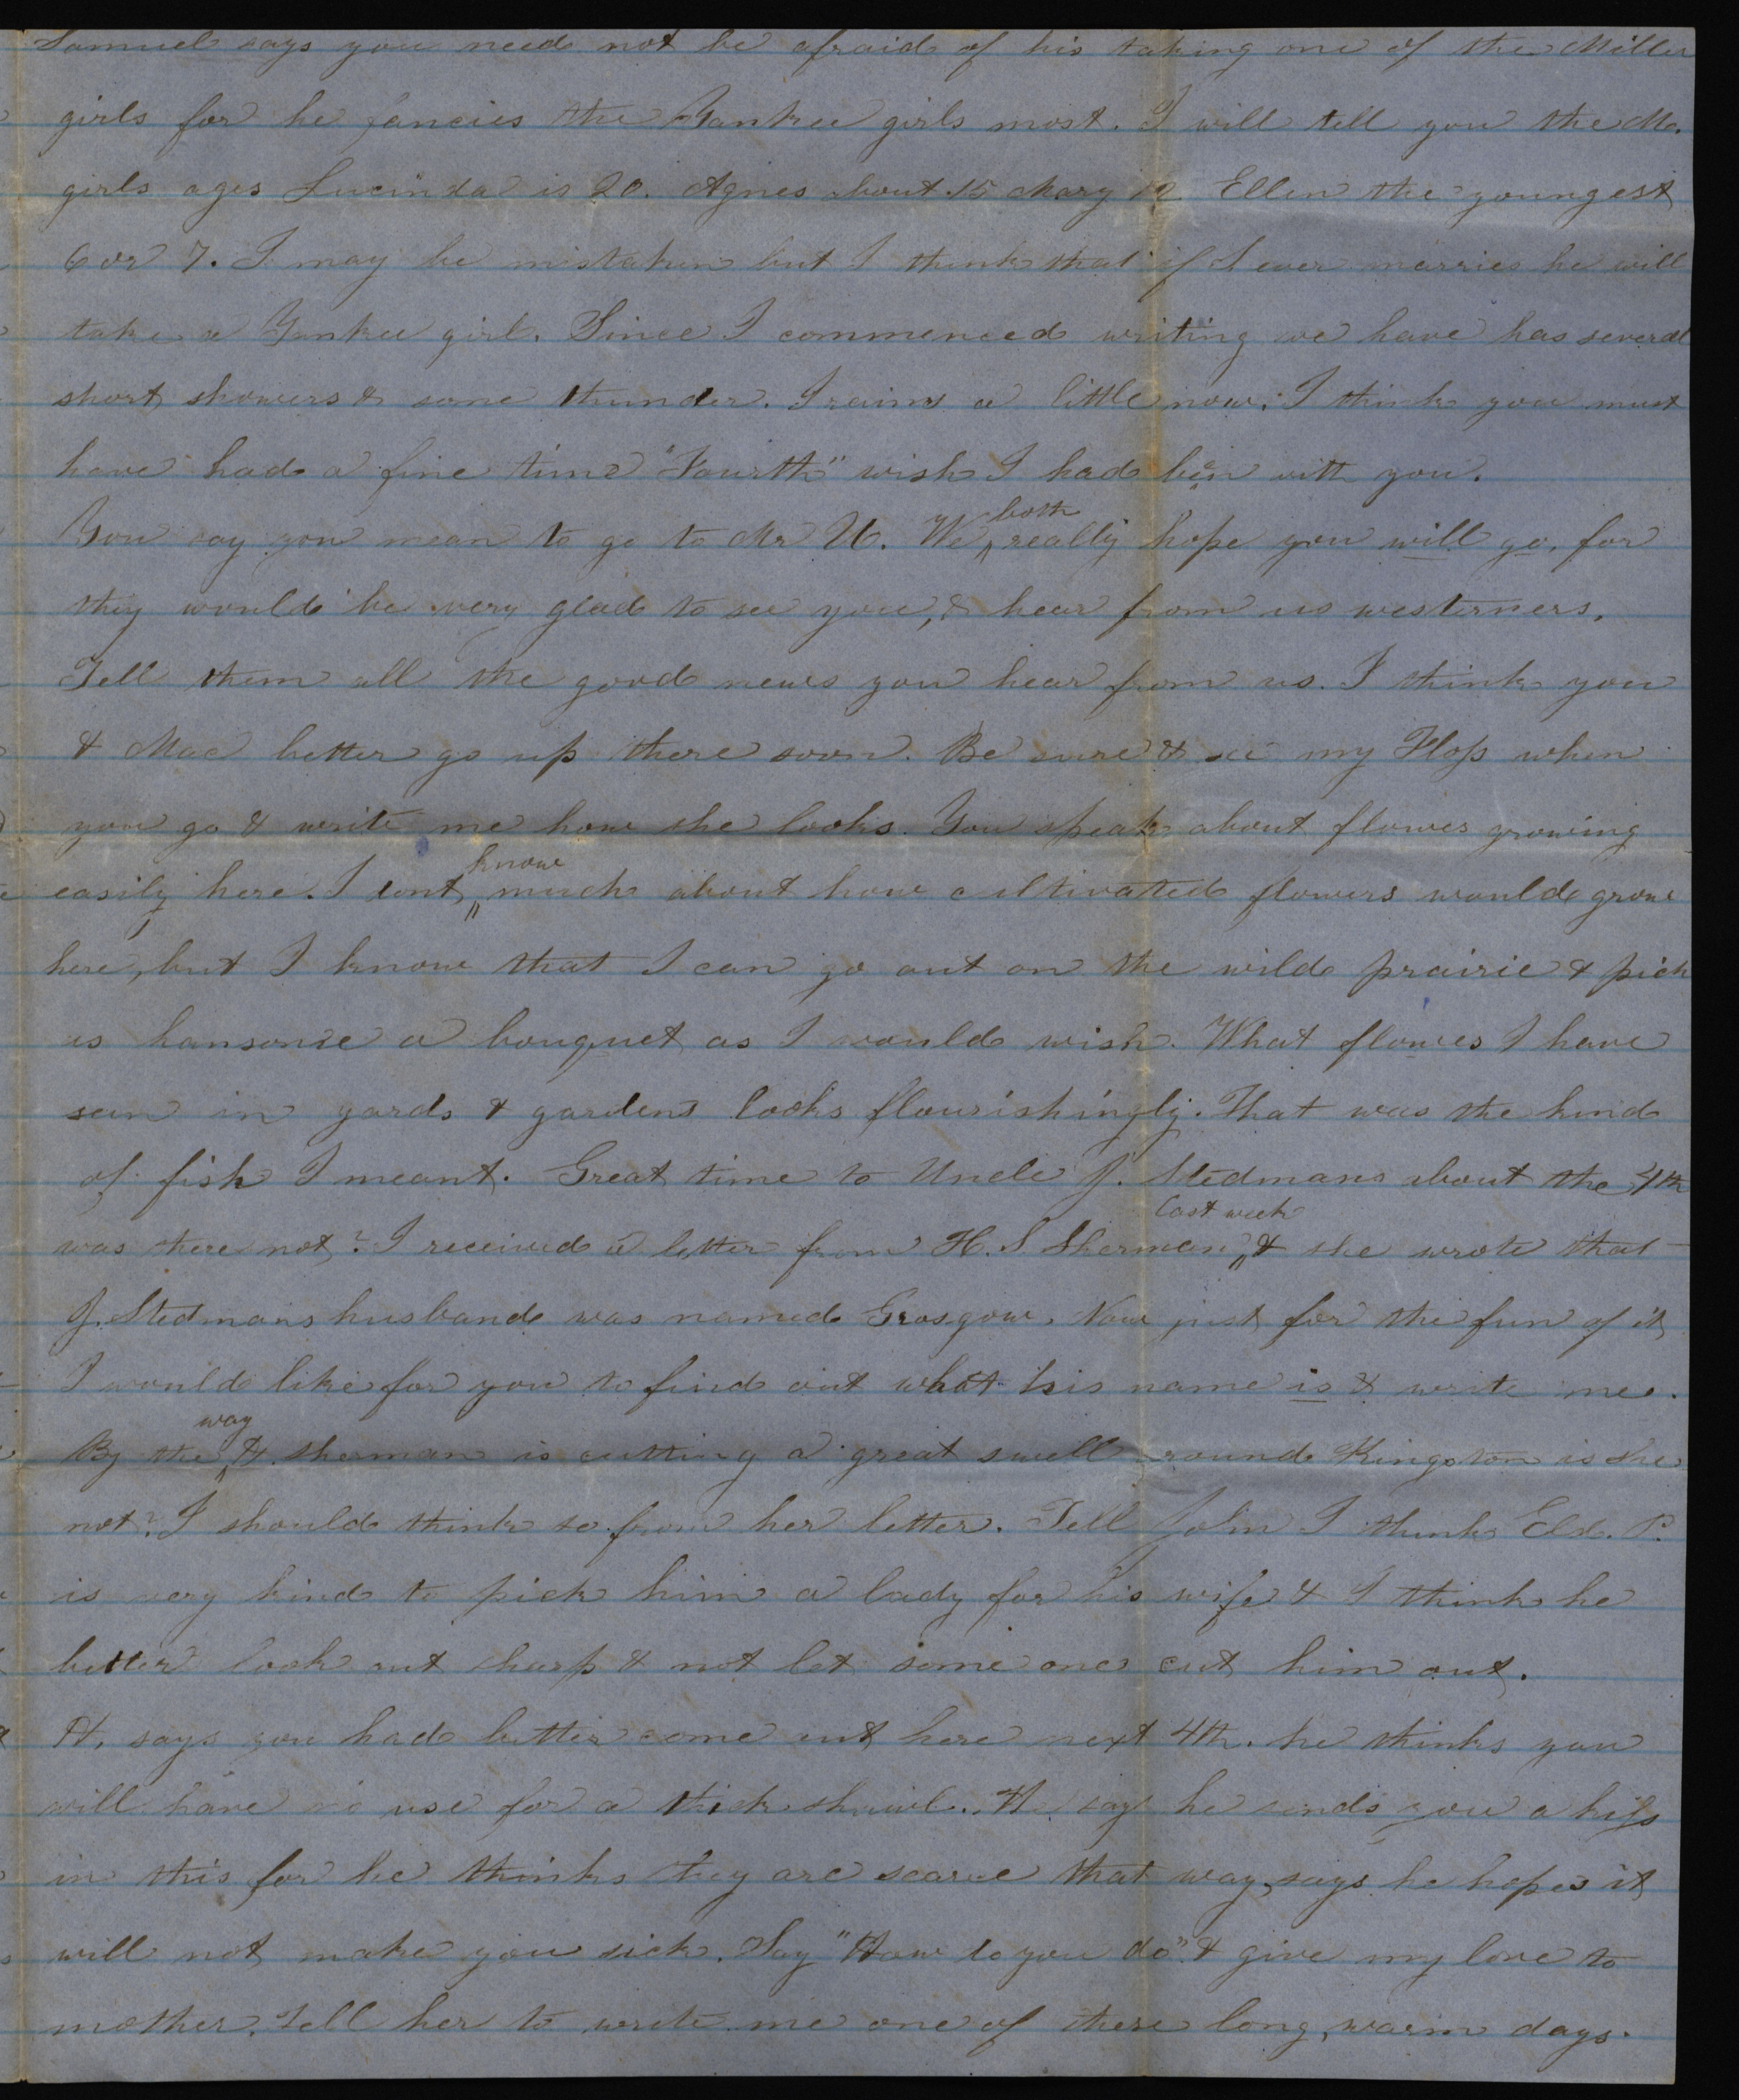 Samuel says you need not be afraid of his taking one of the Miller
girls for he fancies the Yankee girls most. I will tell you the Mc.
girls ages Lucinda is 20. Agnes about 15 Mary 12 Ellen the youngest
6 or 7. I may be mistaken but I think that if S ever marries he will
take a Yankee girl. Since I commenced writing we have has several
short showers & some thunder. I rains a little now. I think you must
have had a fine time "Fourth" wish I had been with you.
You say you mean to go to Mr U. We both really hope you will go, for
they would be very glad to see you, & hear from us westerners.
Tell them all the good news you hear from us. I think you
& Mac better go up there soon. Be sure & see my Floss when
you go & write me how she looks. You speak about flowers growing
easily here. I dont know much about how cultivated flowers would grow
here, but I know that I can go out on the wild prairie & pick
as hansome a bouquet as I would wish. What flowers I have
seen in yards & gardens looks flourishingly. That was the kind
of fish I meant. Great time to Uncle J. Stedmans about the 4th
was there not? I received a letter from H. S. Sherman last week & she wrote that
J. Stedmans husband was named Grosgow. Now just for the fun of it
I would like for you to find out what his name is & write me.
By the way H. Sherman is cutting a great swell round Kingston is she
not? I should think so from her letter. Tell John I think Eld. P.
is very kind to pick him a lady for his wife & I think he
better look out sharp & not let some one cut him out.
H. says you had better come out here next 4th. he thinks you
will have no use for a thick shawl. He says he sends you a kiss
in this for he thinks they are scarce that way, says he hopes it
will not make you sick. Say "How do you do" & give my love to
mother. Tell her to write me one of these long, warm days.